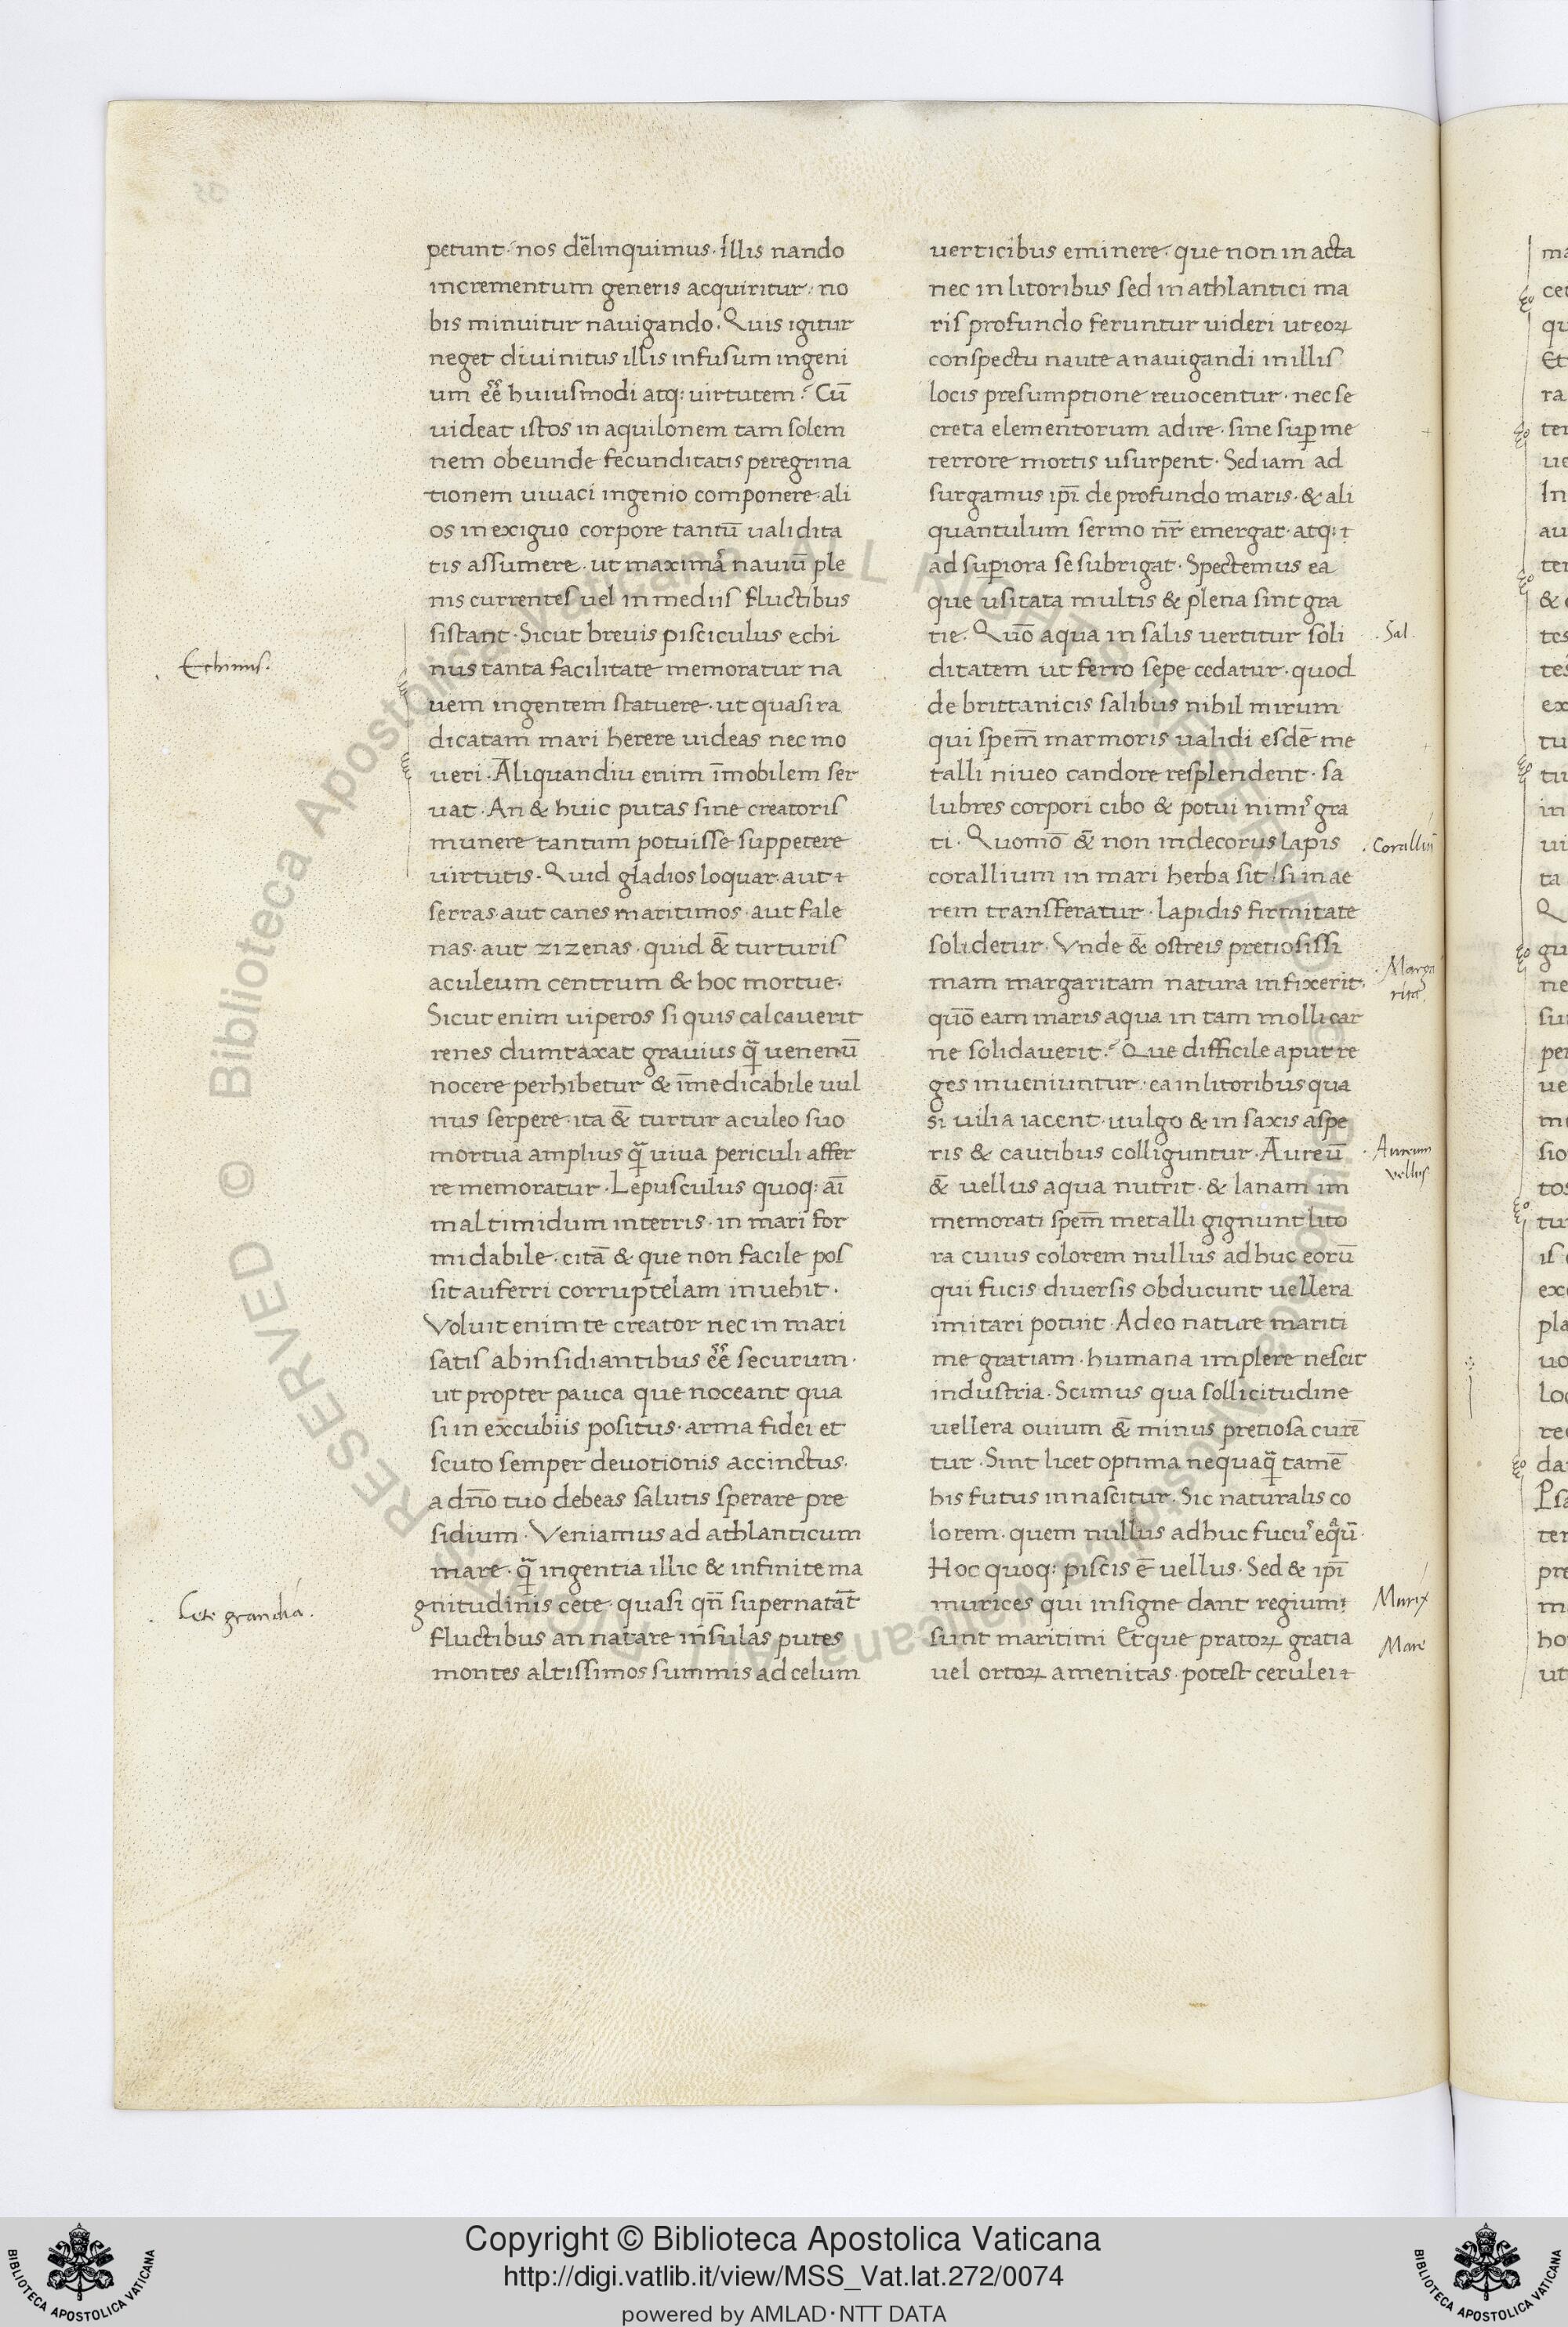 petunt· nos dēlinquimus· Illis nando
incrementum generis acquiritur: no
bis minuitur nauigando. Quis igitur
neget diuinitus illis infusum ingeni
um eē̄ huiusmodi atq: uirtutem? Cū
uideat istos in aquilonem tam solem
nem obeunde fecunditatis peregrina
tionem uiuaci ingenio componere· ali
os in exiguo corpore tantū ualidita
tis assumere· ut maximā nauiū ple
nis currentes uel in mediis fluctibus
sistant· Sicut breuis pisciculus echi
nus tanta facilitate memoratur na
uem ingentem statuere· ut quasi ra
dicatam mari herere uideas nec mo
ueri· Aliquandiu enim īmobilem ser
uat· An & huic putas sine creatoris
munere tantum potuisse suppetere
uirtutis· Quid gladios loquar· aut
serras· aut canes maritimos· aut fale
nas· aut zizenas· quid &̄ turturis
aculeum centrum & hoc mortue·
Sicut enim uiperos si quis calcauerit
renes dumtaxat grauius q̄ uenenū
nocere perhibetur & īmedicabile uul
nus serpere· ita &̄ turtur aculeo suo
mortua amplius q̄ uiua periculi affer
re memoratur· Lepusculus quoq: aī
mal timidum in terris· in mari for
midabile· citā & que non facile pos
sit auferri corruptelam inuehit·
Voluit enim te creator nec in mari
satis ab insidiantibus eē̄ securum·
ut propter pauca que noceant qua
si in excubiis positus· arma fidei et
scuto semper deuotionis accinctus·
a dn̄o tuo debeas salutis sperare pre
sidium· Veniamus ad athlanticum
mare· q̄ ingentia illic & infinite ma
gnitudinis cete· quasi qn̄ supernatāt
fluctibus an natare insulas putes
montes altissimos summis ad celum
Echinus.
Cete grandia.
uerticibus eminere· que non in acta
nec in litoribus sed in athlantici ma
ris profundo feruntur uideri ut eoꝝ
conspectu naute a nauigandi in illis
locis presumptione reuocentur· nec se
creta elementorum adire· sine sup̄me
terrore mortis usurpent· Sed iam ad
surgamus ip̄i de profundo maris· & ali
quantulum sermo nr̄ emergat· atq:
ad sup̄iora se subrigat· Spectemus ea
que usitata multis & plena sint gra
tie· Quō aqua in salis uertitur soli
ditatem ut ferro sepe cedatur· quod
de brittanicis salibus nihil mirum
qui spem̄ marmoris ualidi esdē me
talli niueo candore resplendent· sa
lubres corpori cibo & potui nimis gra
ti· Quomō &̄ non indecorus lapis
corallium in mari herba sit! si in ae
rem transferatur· lapidis firmitate
solidetur· Vnde &̄ ostreis pretiosissi
mam margaritam natura infixerit·
quō eam maris aqua in tam molli car
ne solidauerit? Que difficile aput re
ges inueniuntur· ea in litoribus qua
si uilia iacent· uulgo & in saxis aspe
ris & cautibus colliguntur· Aureū
&̄ uellus aqua nutrit· & lanam im
memorati spem̄ metalli gignunt lito
ra cuius colorem nullus adhuc eorū
qui fucis diuersis obducunt uellera
imitari potuit· Adeo nature mariti
me gratiam· humana implere nescit
industria· Scimus qua sollicitudine
uellera ouium &̄ minus pretiosa curē
tur· Sint licet optima nequaq̄ tamē
his futus innascitur· Sic naturalis co
lorem· quem nullus adhuc fucus eq̄ū·
Hoc quoq: piscis ē uellus· Sed & ip̄i
murices qui insigne dant regium
sunt maritimi Et que pratoꝝ gratia
uel ortoꝝ amenitas· potest cerulei
Sal.
Coralliū
Marga
rita.
Aureum
vellus
Murix
Mare
Copyright © Biblioteca Apostolica Vaticana
http://digi.vatlib.it/view/MSS_Vat.lat.272/0074
powered by AMLAD·NTT DATA
BIBLIOTECA APOSTOLICA VATICANA
BIBLIOTECA APOSTOLICA VATICANA